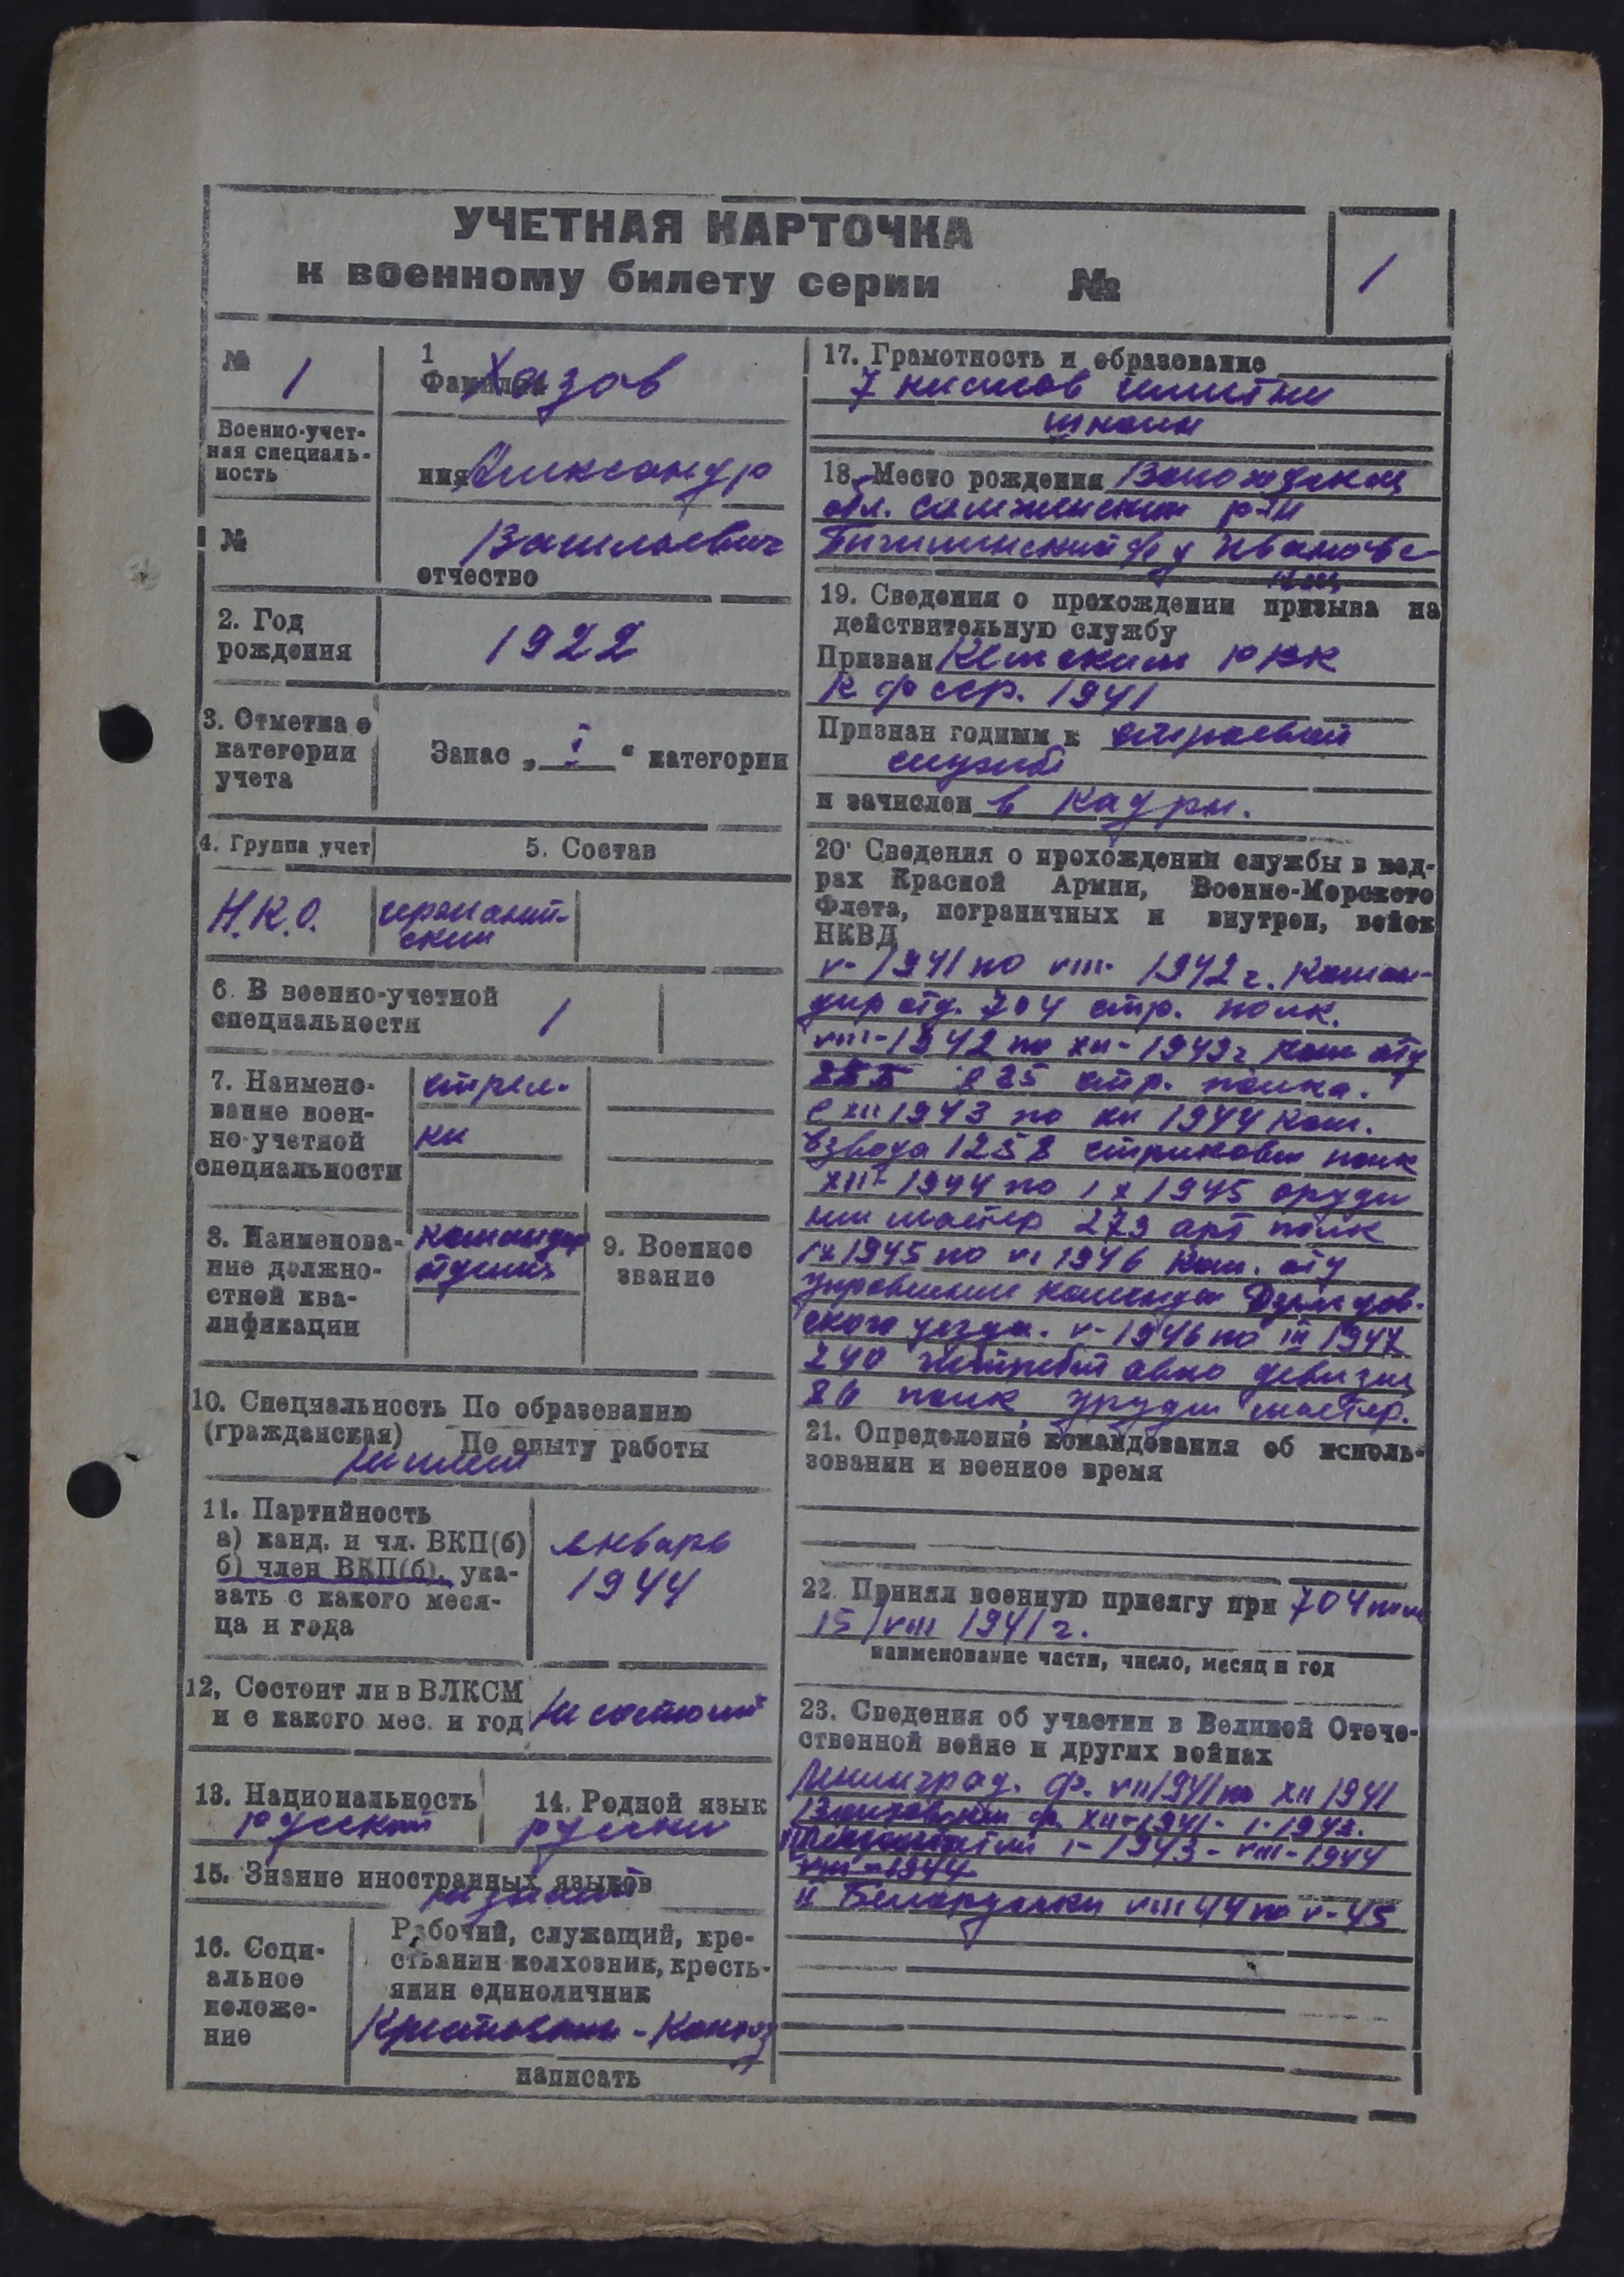 УЧЕТНАЯ КАРТОЧКА
к военному билету серии №
1
№ 1
Военно-учет-
ная специаль-
ность
№
1
Фамилия Хазов
имя Александр
Васильевич
отчество
2. Год
рождения
1922
3. Отметка о
категории
учета
Запас „ I “ категории
4. Группа учет
5. Состав
Н.К.О.
сержант-
ский
6. В военно-учетной
специальности
1
7. Наимено-
вание воен-
но-учетной
специальности
стрел-
ки
8. Наименова-
ние должно-
стной ква-
лификации
командир
отделия
9. Военное
звание
10. Специальность По образованию
(гражданская) По опыту работы
Не имеет
11. Партийность
а) канд. и чл. ВКП(б)
б) член ВКП(б), ука-
зать с какого меся-
ца и года
январь
1944
12. Состоит ли в ВЛКСМ
и с какого мес. и год
Не состоит
13. Национальность
русский
14. Родной язык
русский
15. Знание иностранных языков
не знает
16. Соци-
альное
положе-
ние
Рабочий, служащий, кре-
стьанин колхозник, кресть-
янин единоличник
Крестьянин - Колхоз
написать
17. Грамотность и образование
7 классов
школы
18. Место рождения Вологодская
обл. р-н
с/с д Ивановс-
кая
19. Сведения о прохождении призыва на
действительную службу
Призван РВК
К ф ССР. 1941
Признан годным к строевой
службе
и зачислен в кадры.
20. Сведения о прохождении службы в кад-
рах Красной Армии, Военно-Морского
Флота, пограничных и внутрен, войск
НКВД
V- 1941 по VIII- 1942 г. Коман-
дир отд. 704 стр. полк.
VIII-1942 по XII- 1943 г Ком отд
225 стр. полка.
С XII 1943 по XII 1944 Ком.
взвода 1258 стрелковый полк
XII- 1944 по IX 1945 оруде
ный мастер 273 арт полк
IX 1945 по VI 1946 Ком. отд
управление коменда
ского уезда. V- 1946 по III 1947
240 авио девизия
86 полк мастер.
21. Определение командования об исполь-
зовании и военное время
22. Принял военную присягу при 704 полк
15/VIII 1941 г.
наименование части, число, месяц и год
23. Сведения об участии в Великой Отече-
ственной войне и других войнах
Ленинград. ф. VII 1941 по XII 1941
Волховский ф. XII-1941- I- 1943.
Ленинградский I- 1943 - VIII- 1944
VIII - 1944
и Белорусский VIII 44 по V- 45